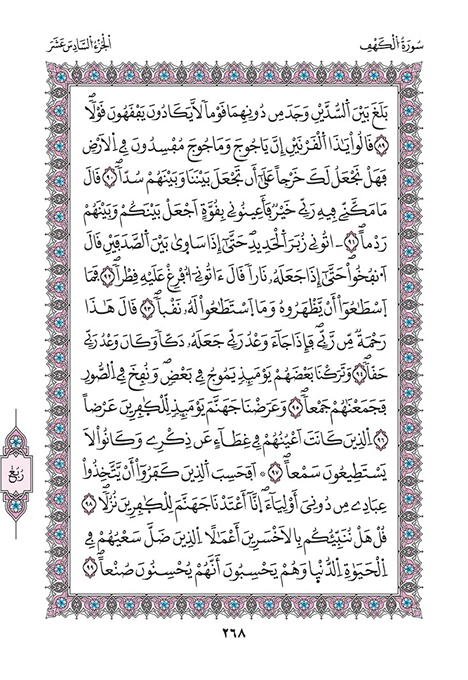 سُورَةُ اَلْكَهْفِ
اَلْجُزْءُ السَّادِسَ عَشَرَ
بَلَغَ بَيْنَ اَ۬لسُّدَّيْنِ وَجَدَ مِن دُونِهِمَا قَوْماٗ لَّا يَكَادُونَ يَفْقَهُونَ قَوْلاٗۖ
٨٩ قَالُواْ يَٰذَا اَ۬لْقَرْنَيْنِ إِنَّ يَاجُوجَ وَمَاجُوجَ مُفْسِدُونَ فِے اِ۬لَارْضِ
فَهَلْ نَجْعَلُ لَكَ خَرْجاً عَلَيٰٓ أَن تَجْعَلَ بَيْنَنَا وَبَيْنَهُمْ سُدّاٗۖ ٩٠ قَالَ
مَا مَكَّنِّے فِيهِ رَبِّے خَيْرٞ فَأَعِينُونِے بِقُوَّةٍ اَجْعَلْ بَيْنَكُمْ وَبَيْنَهُمْ
رَدْماًۖ ٩١ ـ اتُونِے زُبَرَ اَ۬لْحَدِيدِۖ حَتَّيٰٓ إِذَا سَاو۪يٰ بَيْنَ اَ۬لصَّدَفَيْنِ قَالَ
اَ۟نفُخُواْۖ حَتَّيٰٓ إِذَا جَعَلَهُۥ نَاراٗ قَالَ ءَاتُونِےٓ أُفْرِغْ عَلَيْهِ قِطْراٗۖ ٩٢ فَمَا
اَ۪سْطَٰعُوٓاْ أَنْ يَّظْهَرُوهُ وَمَا اَ۪سْتَطَٰعُواْ لَهُۥ نَقْباٗۖ ٩٣ قَالَ هَٰذَا
رَحْمَةٞ مِّن رَّبِّےۖ فَإِذَا جَآءَ وَعْدُ رَبِّے جَعَلَهُۥ دَكّاٗ وَكَانَ وَعْدُ رَبِّے
حَقّاٗۖ ٩٤ وَتَرَكْنَا بَعْضَهُمْ يَوْمَئِذٖ يَمُوجُ فِے بَعْضٖۖ وَنُفِخَ فِے اِ۬لصُّورِ
فَجَمَعْنَٰهُمْ جَمْعاٗۖ ٩٥ وَعَرَضْنَا جَهَنَّمَ يَوْمَئِذٖ لِّلْكٰ۪فِرِينَ عَرْضاً
٩٦ اِ۬لذِينَ كَانَتَ اَعْيُنُهُمْ فِے غِطَآءٍ عَن ذِكْرِے وَكَانُواْ لَا
يَسْتَطِيعُونَ سَمْعاًۖ ٩٧ ۞ اَفَحَسِبَ اَ۬لذِينَ كَفَرُوٓاْ أَنْ يَّتَّخِذُواْ
عِبَادِے مِن دُونِيَ أَوْلِيَآءَۖ اِنَّآ أَعْتَدْنَا جَهَنَّمَ لِلْكٰ۪فِرِينَ نُزُلاٗۖ ٩٨
قُلْ هَلْ نُنَبِّئُكُم بِالَاخْسَرِينَ أَعْمَٰلاً اِ۬لذِينَ ضَلَّ سَعْيُهُمْ فِے
اِ۬لْحَيَوٰةِ اِ۬لدُّنْي۪ا وَهُمْ يَحْسِبُونَ أَنَّهُمْ يُحْسِنُونَ صُنْعاًۖ ٩٩
رُبُع
٢٦٨